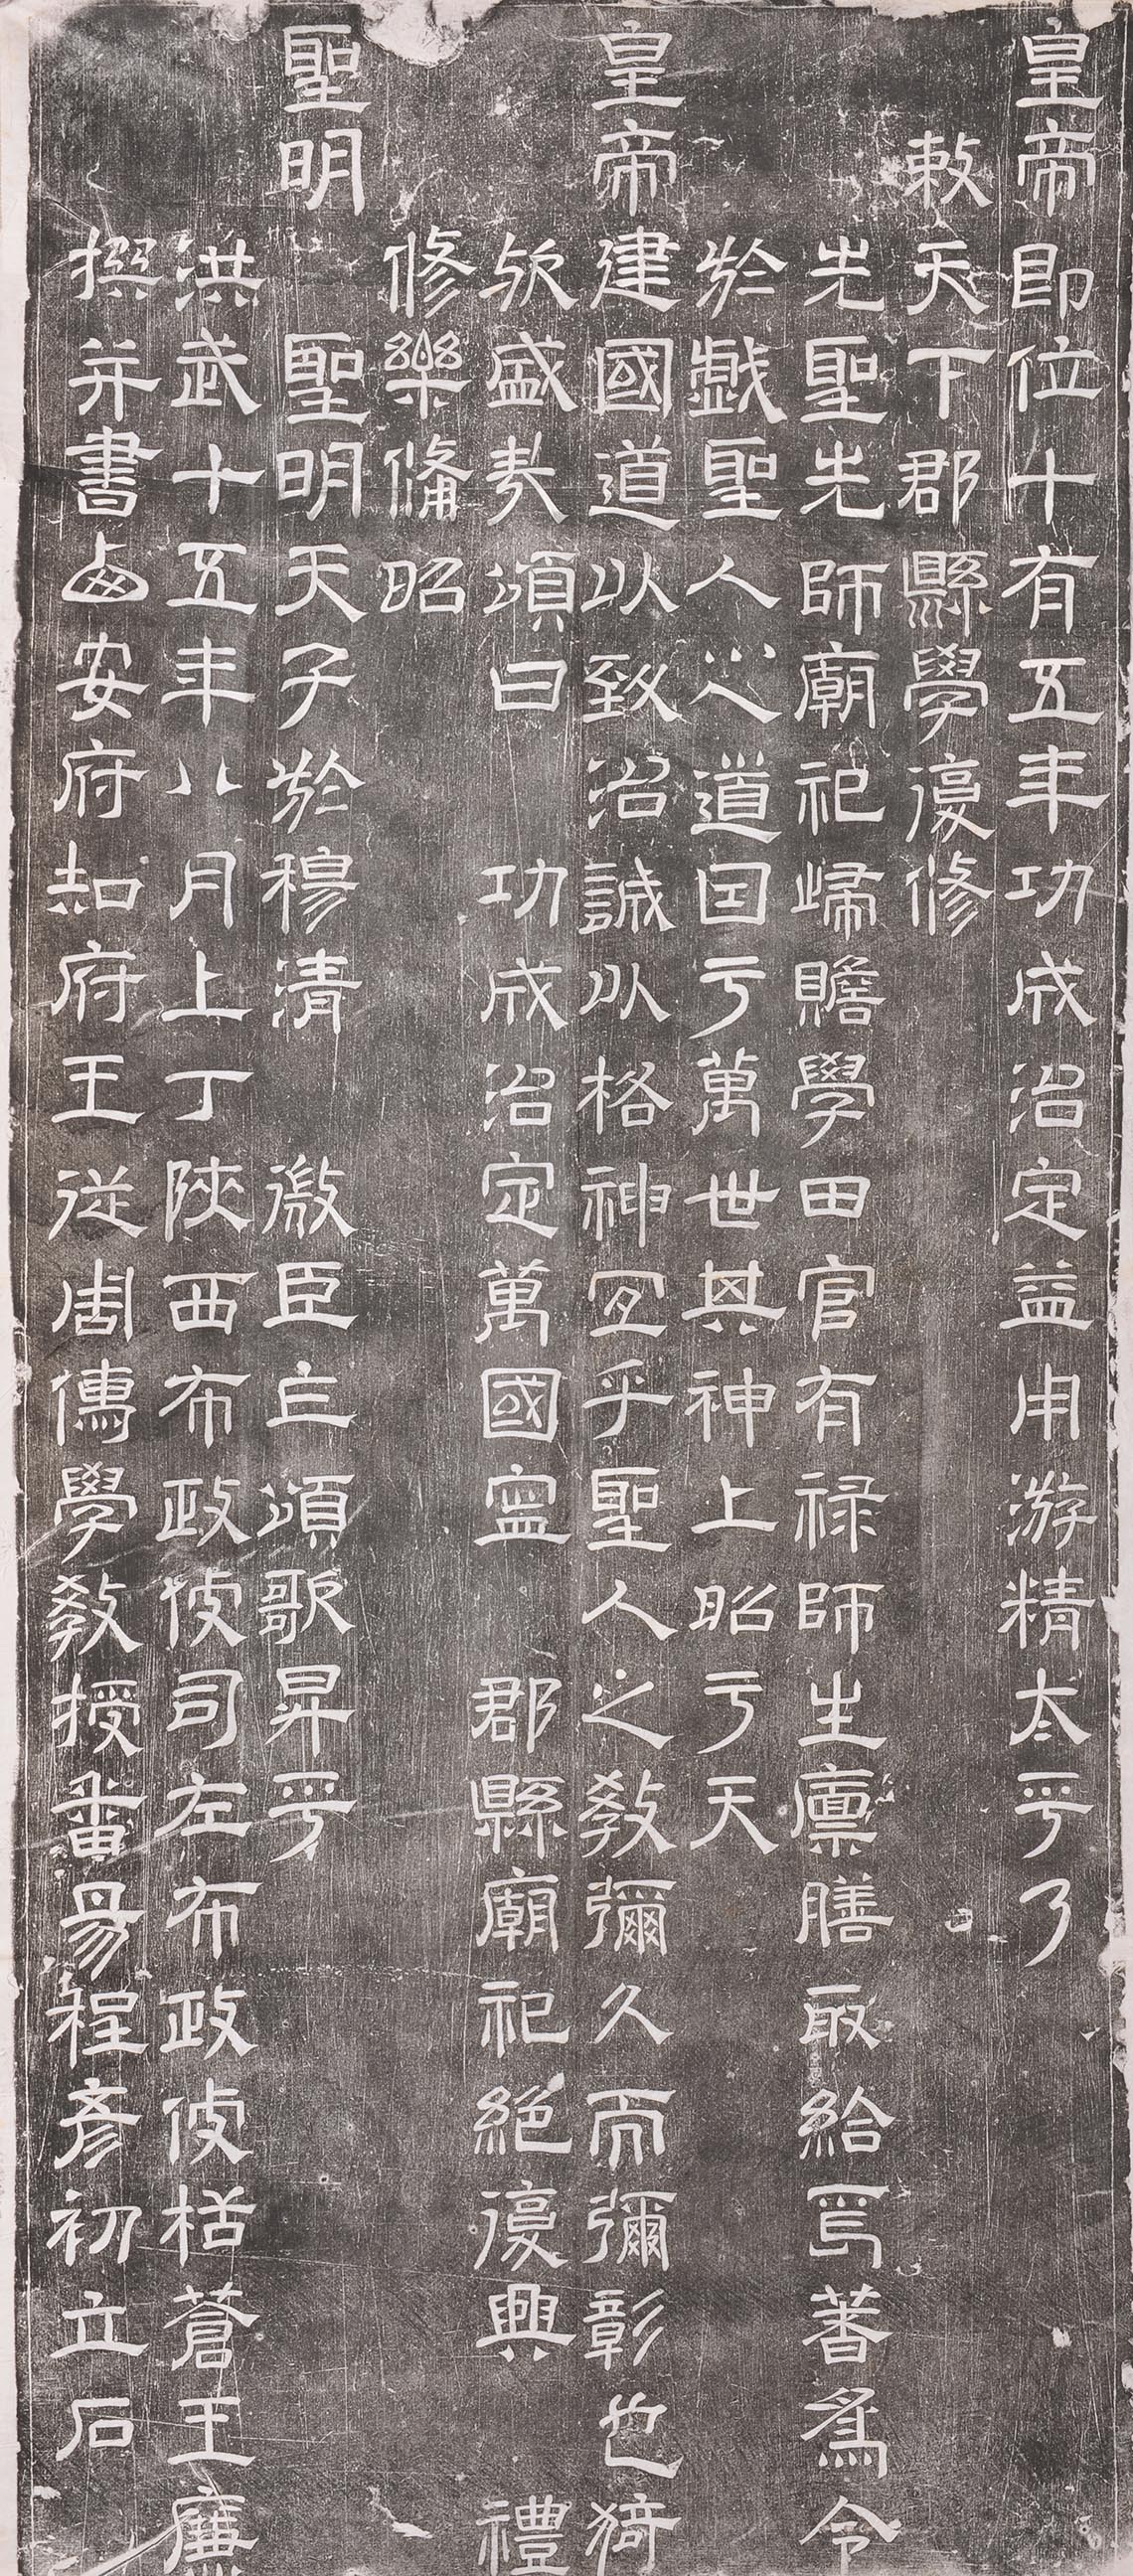 皇帝即位十有五年功成治定益用游精太平乃
敕天下郡縣學復修
先聖先師廟祀歸贍學田官有禄師生廩膳取給焉著爲令
於戲聖人心道囯亏萬世其神上昭亏天
皇帝建國道以致治誠以格神宜乎聖人之教彌久而彌彰也猗
欤盛矣頌曰 功成治定萬國寍 郡縣廟祀絶復興 禮
修樂俻昭
聖明 聖明天子於穆清 微臣亡頌歌昇平
洪武十五年八月上丁陝西布政使司左布政使栝蒼王廉
撰并書 西安府知府王從周傳學教授番昜程彥初立石